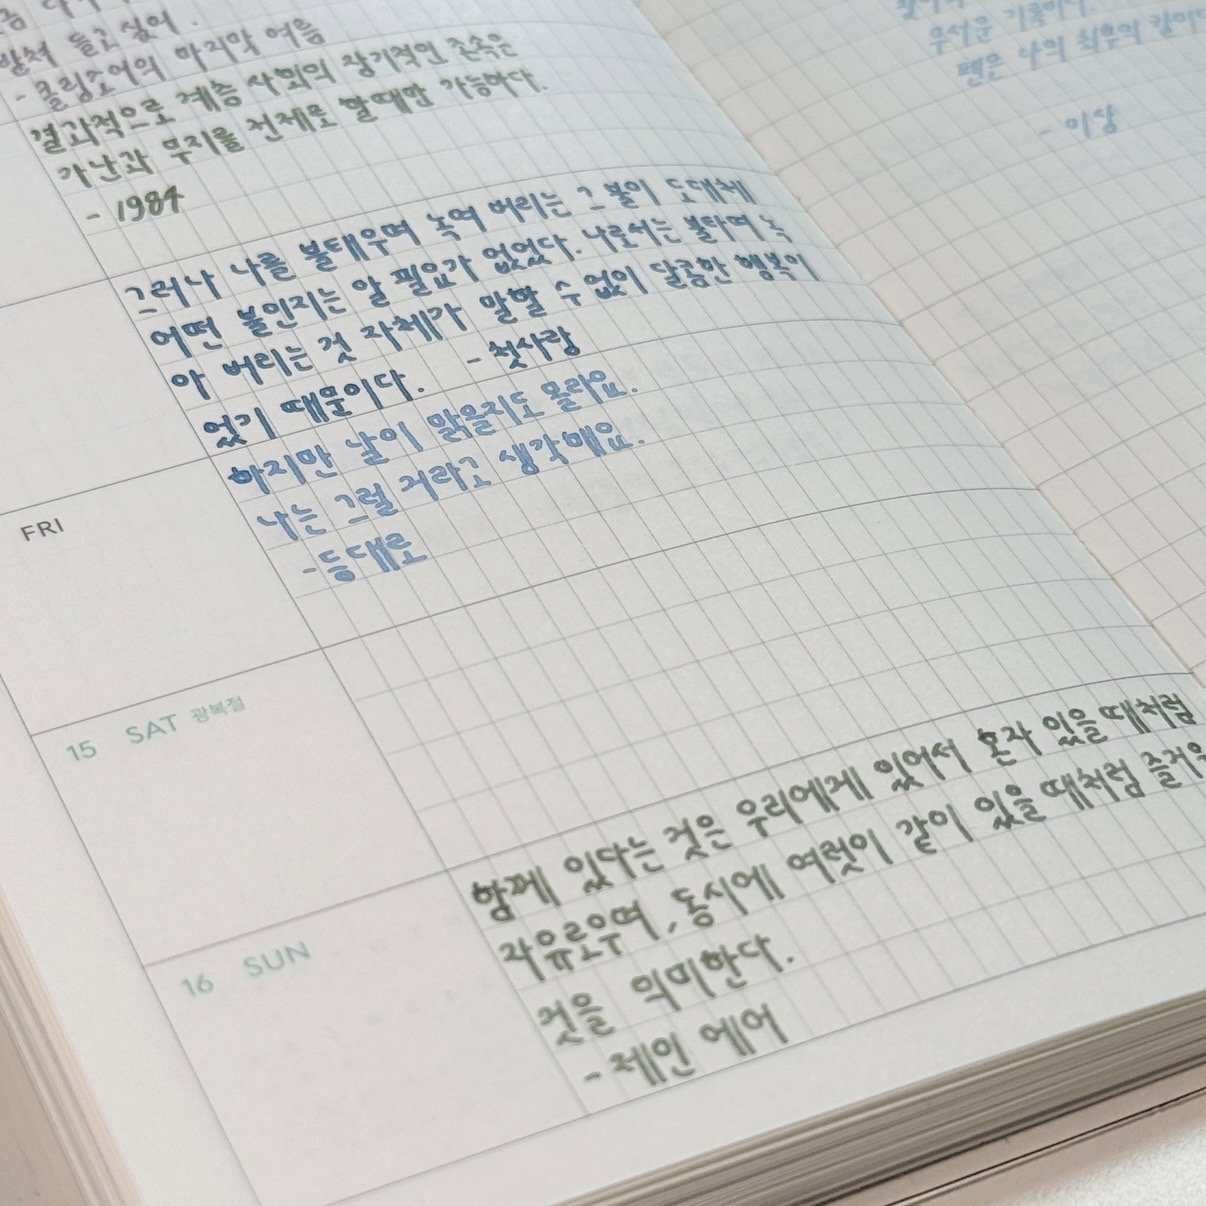 발쳐 들고 싶어.
- 클링조어의 마지막 여름
결과적으로 계층 사회의 장기적인 존속은
가난과 무지를 전제로 할때만 가능하다.
- 1984
그러나 나를 불태우며 녹여 버리는 그 불이 도대체
어떤 불인지는 알 필요가 없었다. 나로서는 불타며 녹
아 버리는 것 자체가 말할 수 없이 달콤한 행복이
었기 때문이다. - 첫사랑
FRI
하지만 날이 맑을지도 몰라요.
나는 그럴 거라고 생각해요.
- 등대로
15 SAT 광복절
16 SUN
함께 있다는 것은 우리에게 있어서 혼자 있을때처럼
자유로우며, 동시에 여럿이 같이 있을 때처럼 즐거운
것을 의미한다.
- 제인 에어
무서운 기록이다.
펜은 나의 최후의 칼이다
- 이상